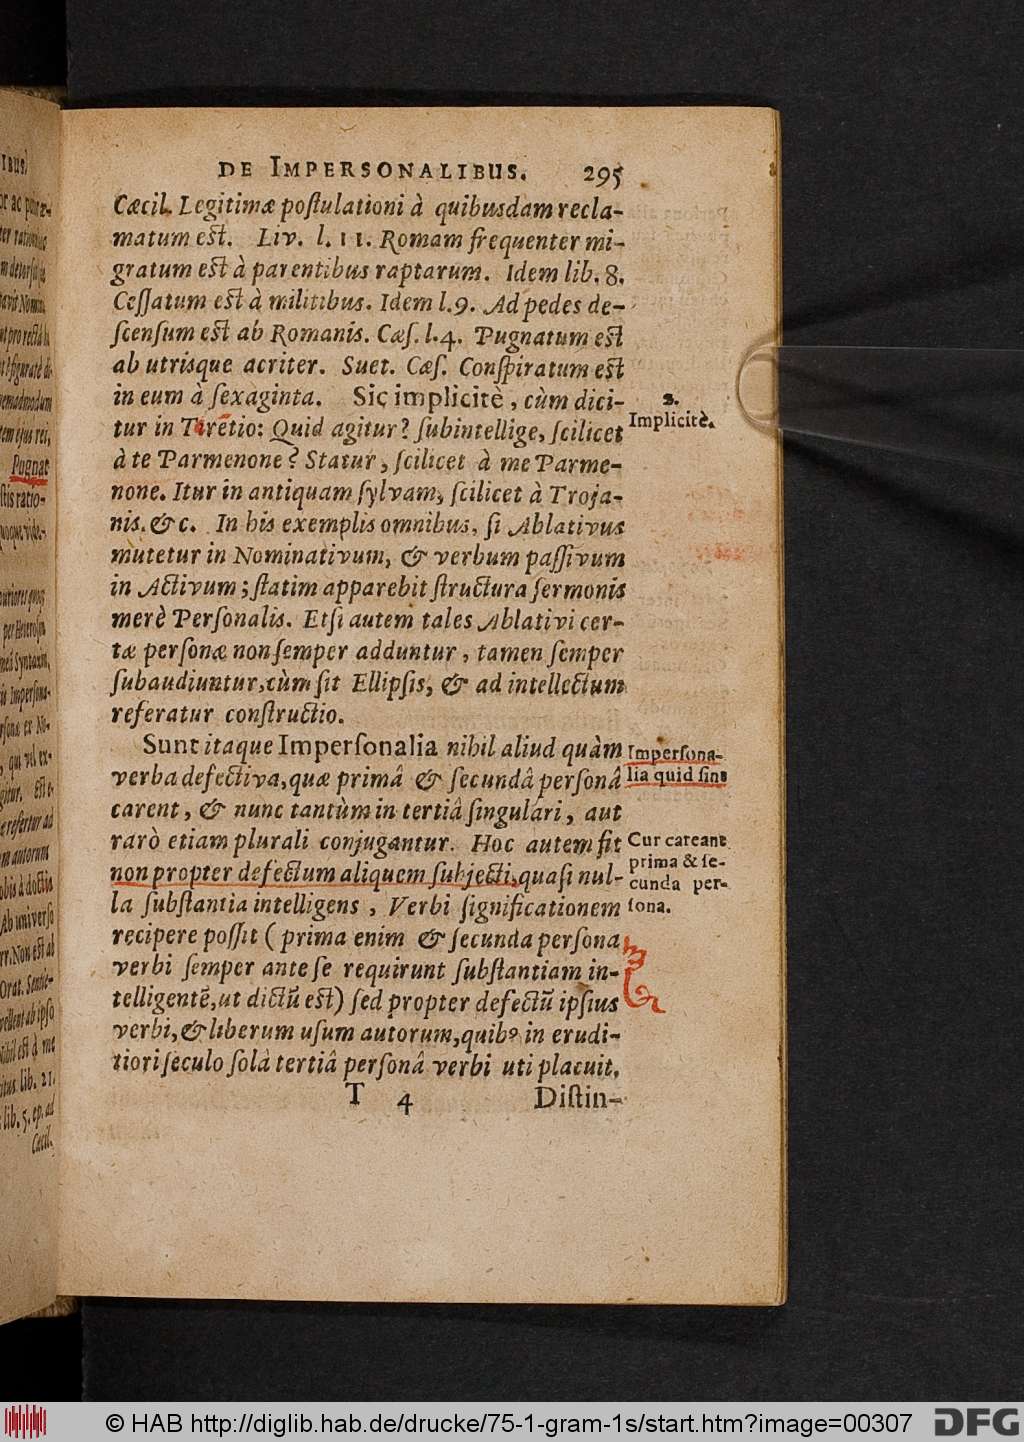 DE IMPERSONALIBUS. 295
Cæcil. Legitimæ poſtulationi à quibusdam recla-
matum eſt. Liv. l. 11. Romam frequenter mi-
gratum eſt à parentibus raptarum. Idem lib. 8.
Ceſſatum eſt à militibus. Idem l. 9. Ad pedes de-
ſcenſum eſt ab Romanis. Cæſ. l. 4. Pugnatum eſt
ab utrisque acriter. Suet. Cæſ. Conſpiratum eſt
in eum à ſexaginta. Sic implicitè, cùm dici-
tur in Teretio: Quid agitur? ſubintellige, ſcilicet
à te Parmenone? Statur, ſcilicet à me Parme-
none. Itur in antiquam ſylvam, ſcilicet à Troja-
nis. &c. In his exemplis omnibus, ſi Ablativus
mutetur in Nominativum, & verbum paſſivum
in Activum; ſtatim apparebit ſtructura ſermonis
merè Perſonalis. Etſi autem tales Ablativi cer-
tæ perſonæ non ſemper adduntur, tamen ſemper
ſubaudiuntur, cùm ſit Ellipſis, & ad intellectum
referatur conſtructio.
Sunt itaque Imperſonalia nihil aliud quàm
verba defectiva, quæ primâ & ſecundâ perſonâ
carent, & nunc tantùm in tertiâ ſingulari, aut
rarò etiam plurali conjugantur. Hoc autem fit
non propter defectum aliquem ſubjecti, quaſi nul-
la ſubſtantia intelligens, Verbi ſignificationem
recipere poſſit (prima enim & ſecunda perſona
verbi ſemper ante ſe requirunt ſubſtantiam in-
telligentē, ut dictū eſt) ſed propter defectū ipſius
verbi, & liberum uſum autorum, quibꝰ in erudi-
tiori ſeculo ſolâ tertiâ perſonâ verbi uti placuit.
T 4 Diſtin-
2.
Implicitè.
Imperſona-
lia quid ſint
Cur careant
prima & ſe-
cunda per-
ſona.
Pugnat
© HAB http://diglib.hab.de/drucke/75-1-gram-1s/start.htm?image=00307 DFG